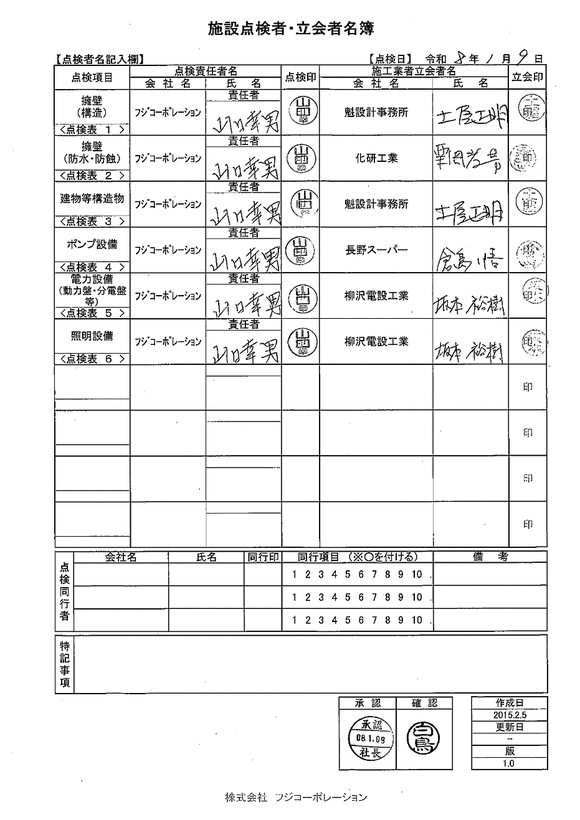 施設点検者・立会者名簿
【点検者名記入欄】 【点検日】 令和 8 年 1 月 9 日
点検項目 点検責任者名 点検印 施工業者立会者名 立会印
会 社 名 氏 名 会 社 名 氏 名
擁壁
(構造)
<点検表 1 > フジコーポレーション 責任者 山口幸男 魁設計事務所 土屋正明 印
擁壁
(防水・防蝕)
<点検表 2 > フジコーポレーション 責任者 山口幸男 化研工業 印
建物等構造物
<点検表 3 > フジコーポレーション 責任者 山口幸男 魁設計事務所 土屋正明 印
ポンプ設備
<点検表 4 > フジコーポレーション 責任者 山口幸男 長野スーパー 倉島 悟
電力設備
(動力盤・分電盤
等)
<点検表 5 > フジコーポレーション 責任者 山口幸男 柳沢電設工業 坂本 裕樹 印
照明設備
<点検表 6 > フジコーポレーション 責任者 山口幸男 柳沢電設工業 坂本 裕樹 印
印
印
印
印
点検同行者
会社名 氏名 同行印 同行項目 (※〇を付ける) 備 考
1 2 3 4 5 6 7 8 9 10
1 2 3 4 5 6 7 8 9 10
1 2 3 4 5 6 7 8 9 10
特記事項
承 認 確 認
承認
08.1.09
社長
白鳥
作成日
2015.2.5
更新日
~
版
1.0
株式会社 フジコーポレーション